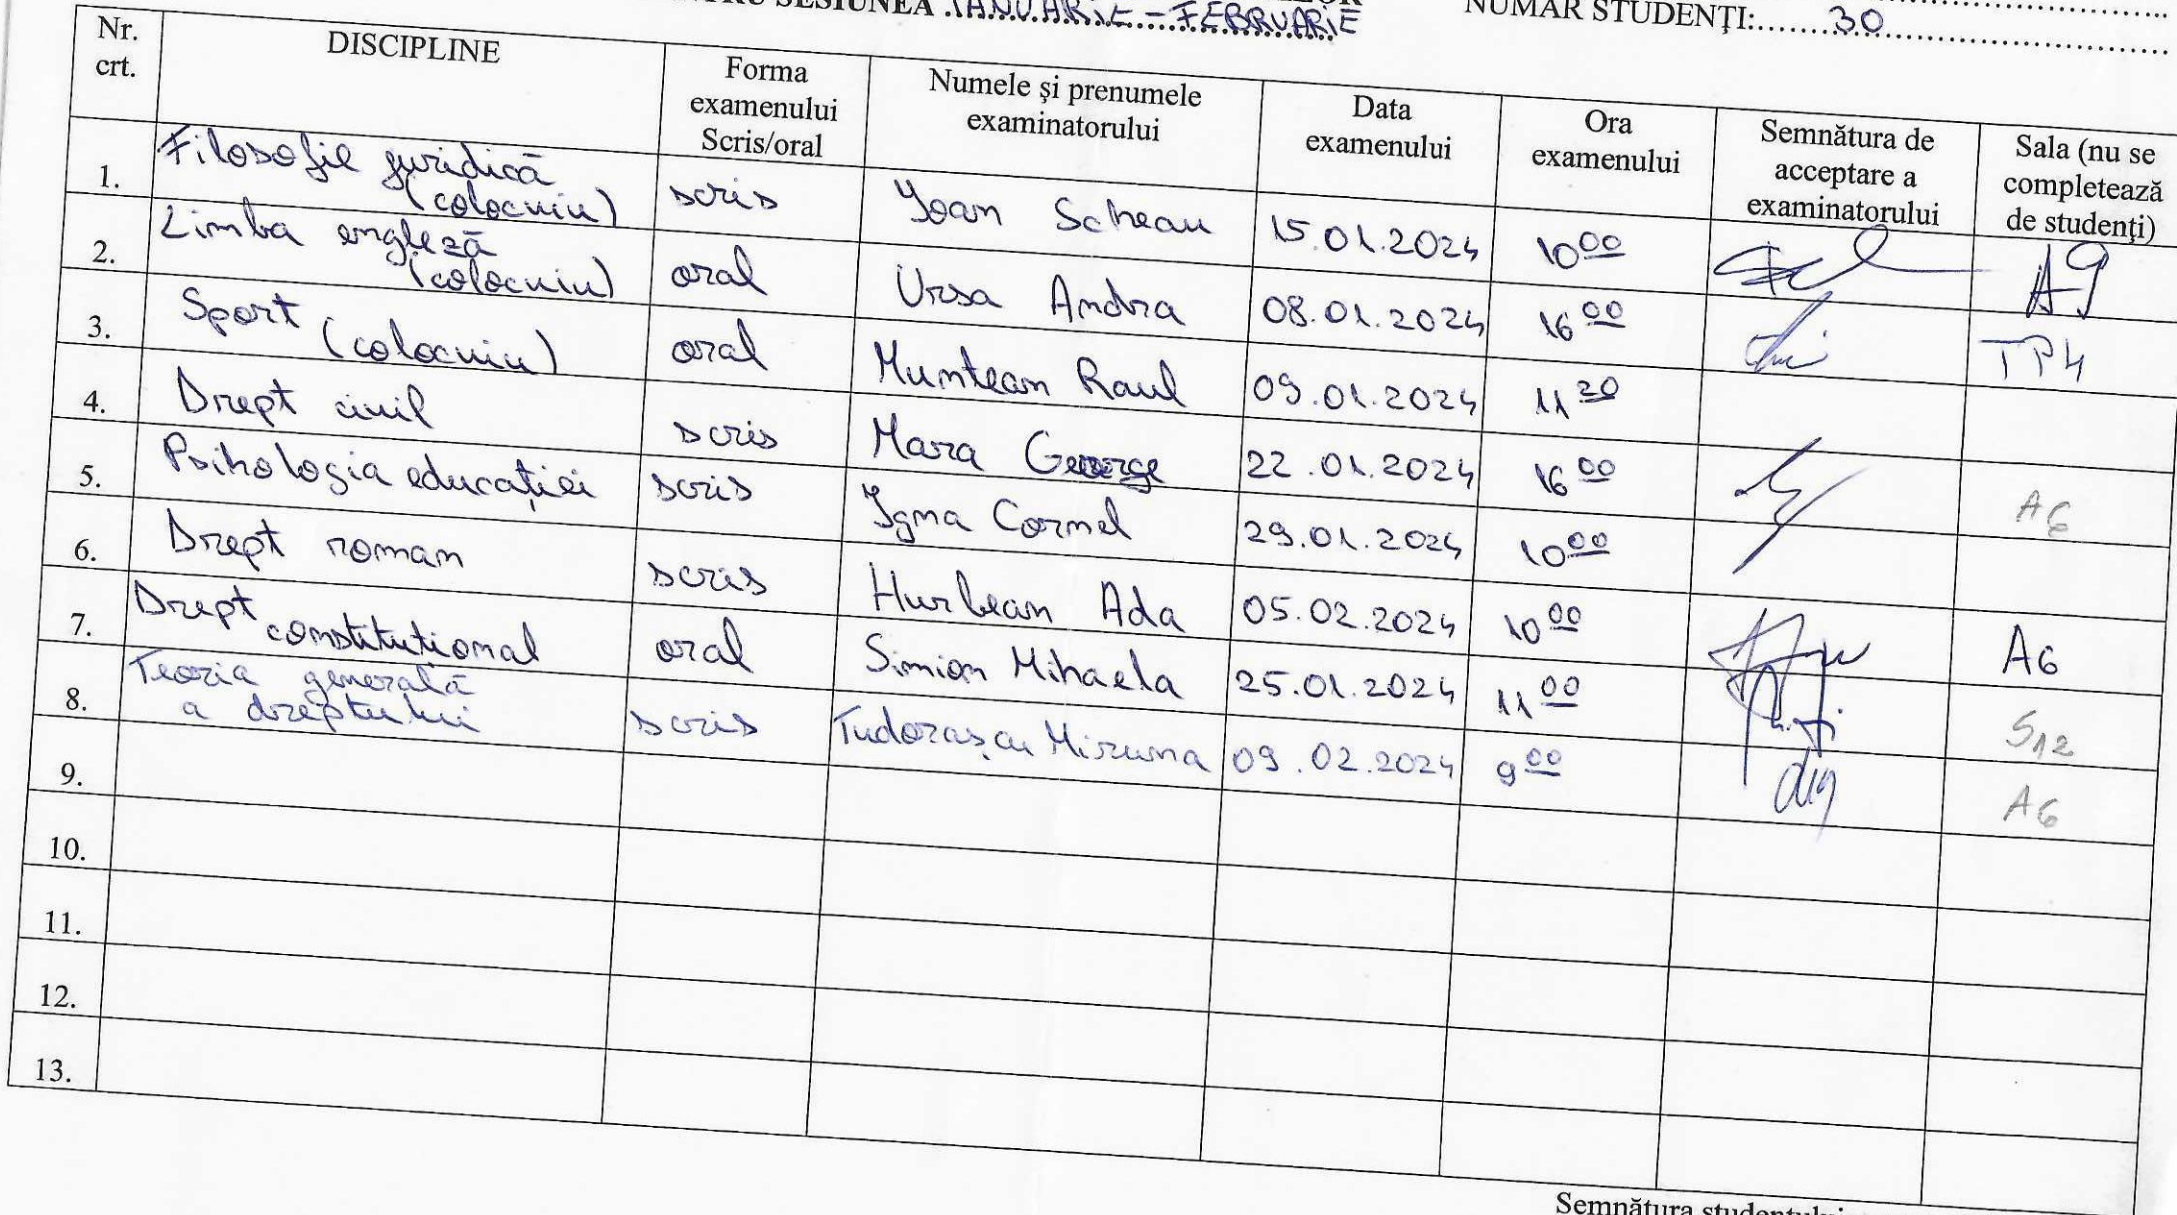 PENTRU SESIUNEA IANUARIE - FEBRUARIE NUMĂR STUDENȚI: 30
Nr. crt. DISCIPLINE Forma examenului Scris/oral Numele şi prenumele examinatorului Data examenului Ora examenului Semnătura de acceptare a examinatorului Sala (nu se completează de studenţi)
1. Filosofie juridică (colocviu) scris Ioan Scheau 15.01.2024 10 00 A9
2. Limba engleză (colocviu) oral Ursa Andra 08.01.2024 16 00 TP4
3. Sport (colocviu) oral Muntean Raul 09.01.2024 11 20
4. Drept civil scris Mara George 22.01.2024 16 00 A6
5. Psihologia educației scris Igna Cornel 29.01.2024 10 00
6. Drept roman scris Hurbean Ada 05.02.2024 10 00 A6
7. Drept constituțional oral Simion Mihaela 25.01.2024 11 00 S12
8. Teoria generală a dreptului scris Tudorașcu Miruna 09.02.2024 9 00 A6
9.
10.
11.
12.
13.
Semnătura studentului